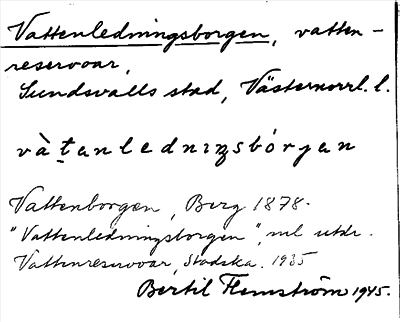 Vattenledningsborgen, vatten-
reservoar,
Sundsvalls stad, Västernorrl. l.
và̀t̠anledniŋsbórjan
Vattenborgen, Berg 1878.
"Vattenledningsborgen", enl utdr.
Vattenreservoar, Stadska. 1935
Bertil Flemström 1945.